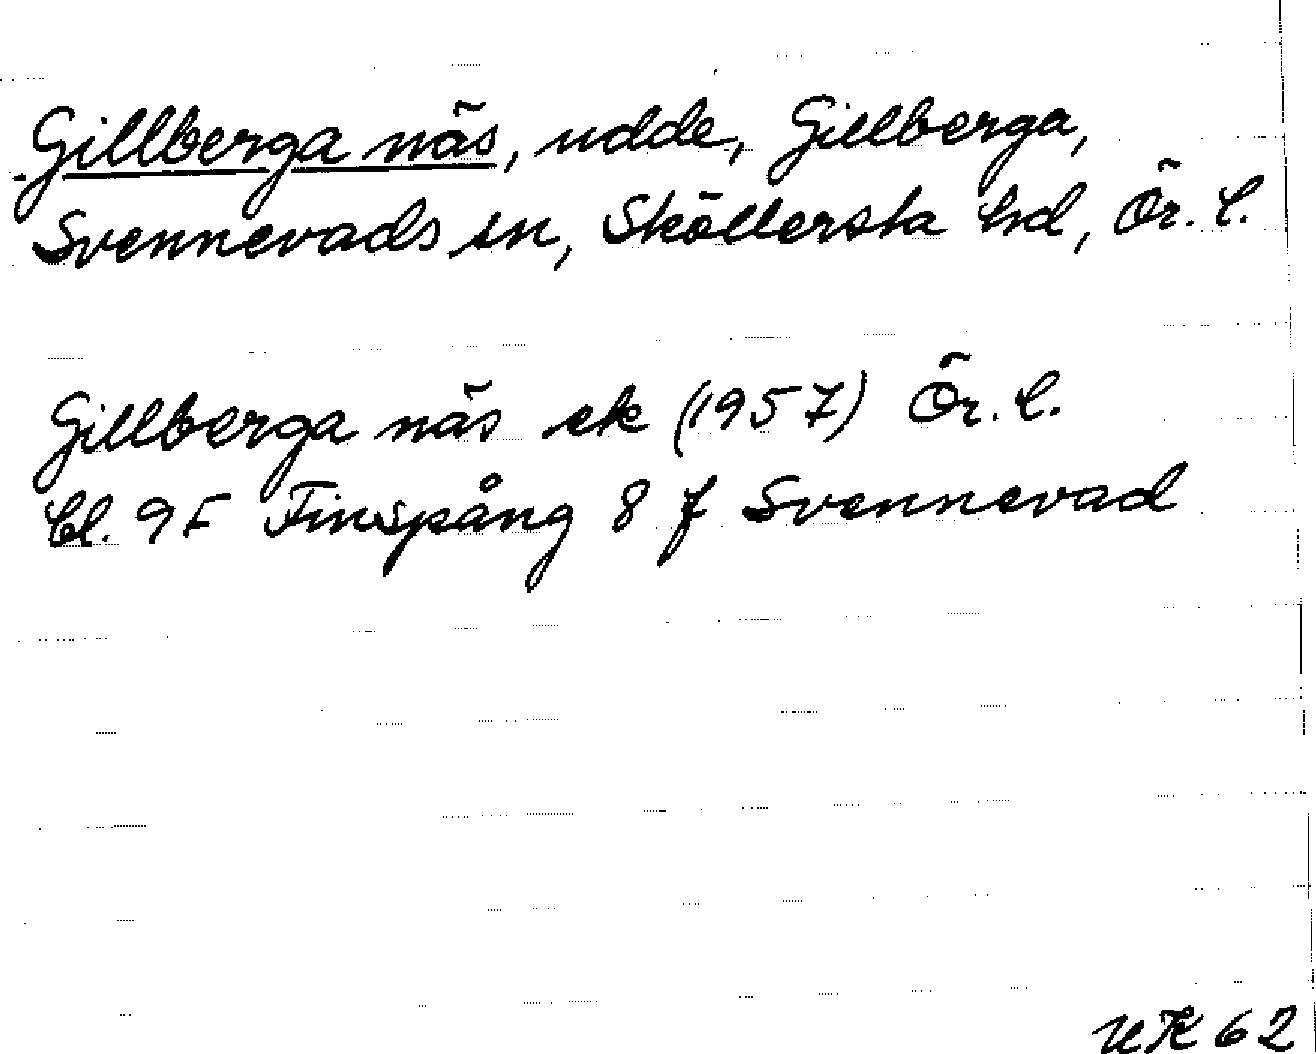 Gillberga näs, udde, Gillberga,
Svennevads sn, Sköllersta hd, Ör. l.
Gillberga näs ek (1957) Ör. l.
bl. 9F Finspång 8 f Svennevad
UK 62